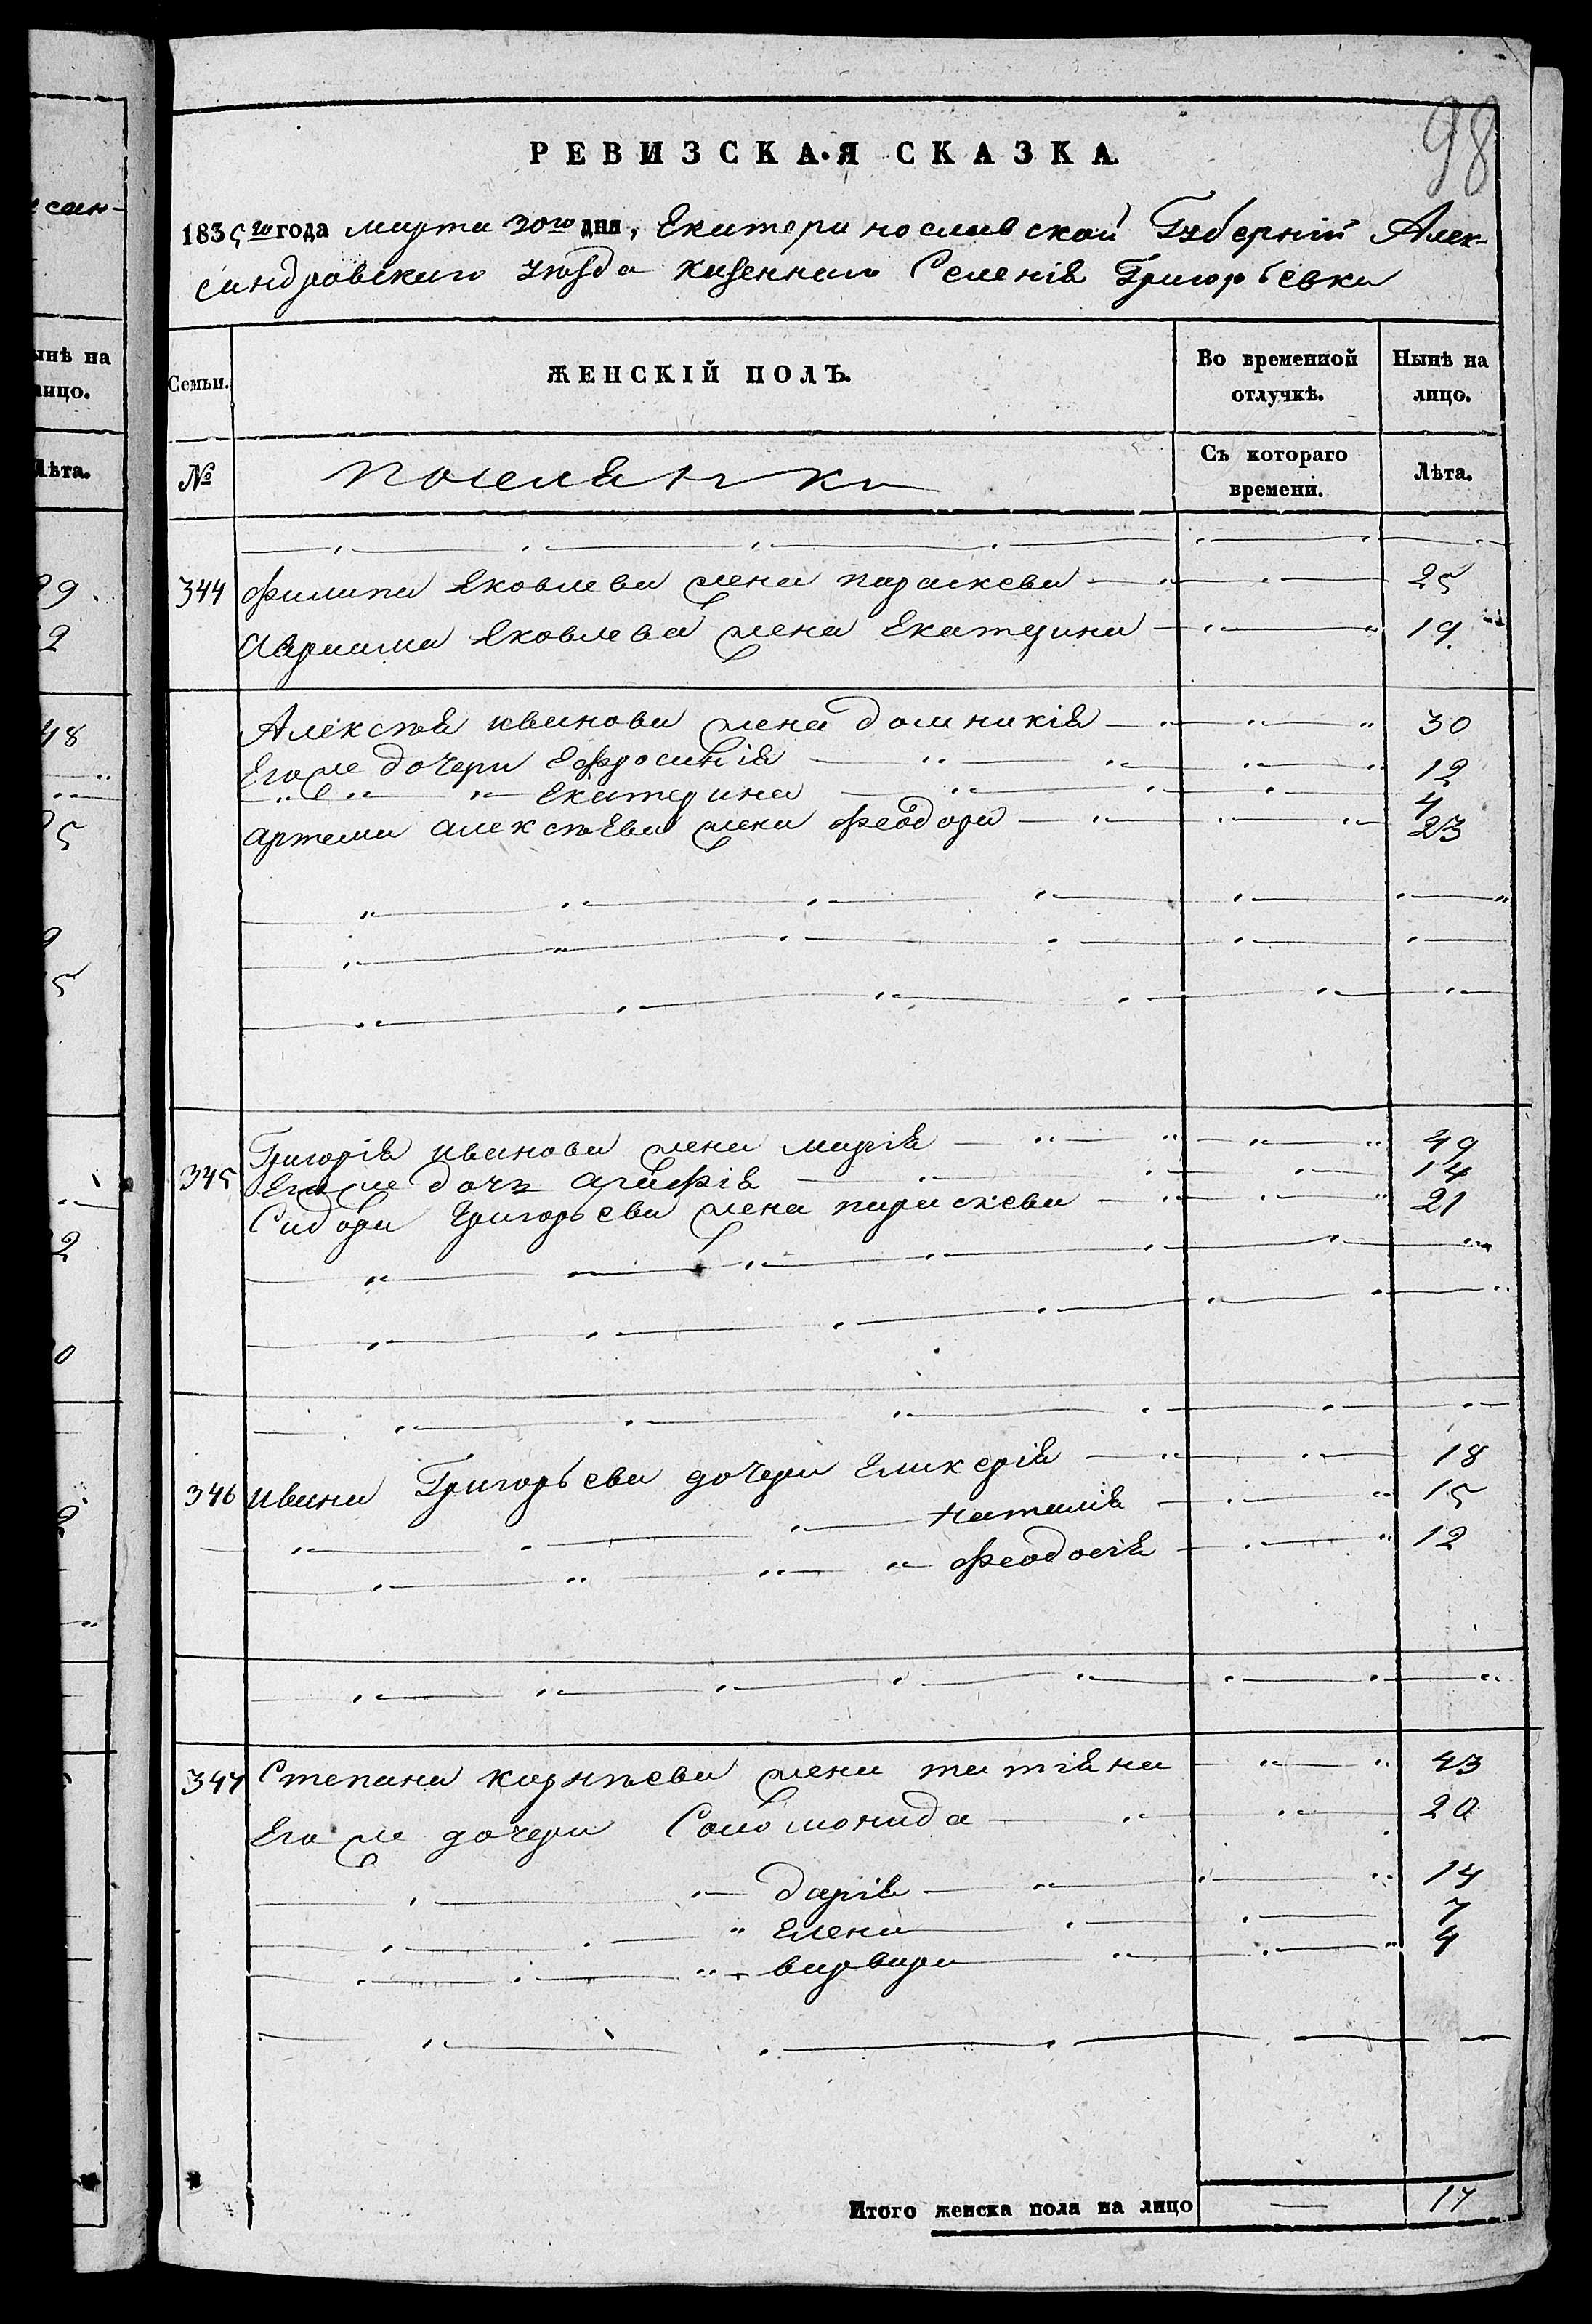 98
РЕВИЗСКАЯ СКАЗКА.
1835го года марта 30го дня, Екатеринославской Губерніи Алек-
сандровскаго уѣзда казеннаго Селенія Григорьевки
Семьи.
ЖЕНСКІЙ ПОЛЪ.
Во временной отлучкѣ.
Нынѣ на лицо.
№
поселянки
Съ котораго времени.
Лѣта.
344 Филипа Яковлева жена параскева 25
Авраама Яковлева жена Екатерина 19.
Алексѣя иванова жена домникія 30
Его же дочери Ефросинія 12
Екатерина 4
артема алексѣева жена феодора 23
345 Григорія иванова жена марія 49
Его же дочь агафія 14
Сидора Григорьева жена параскева 21
346 ивана Григорьева дочери Гликерія 18
наталія 15
феодосія 12
347 Степана карнѣева жена татіяна 43
Его же дочери Соломонида 20
дарія 14
Елена 7
варвара 4
Итого женска пола на лицо — 17
сан-
ынѣ на
лицо.
Лѣта.
48